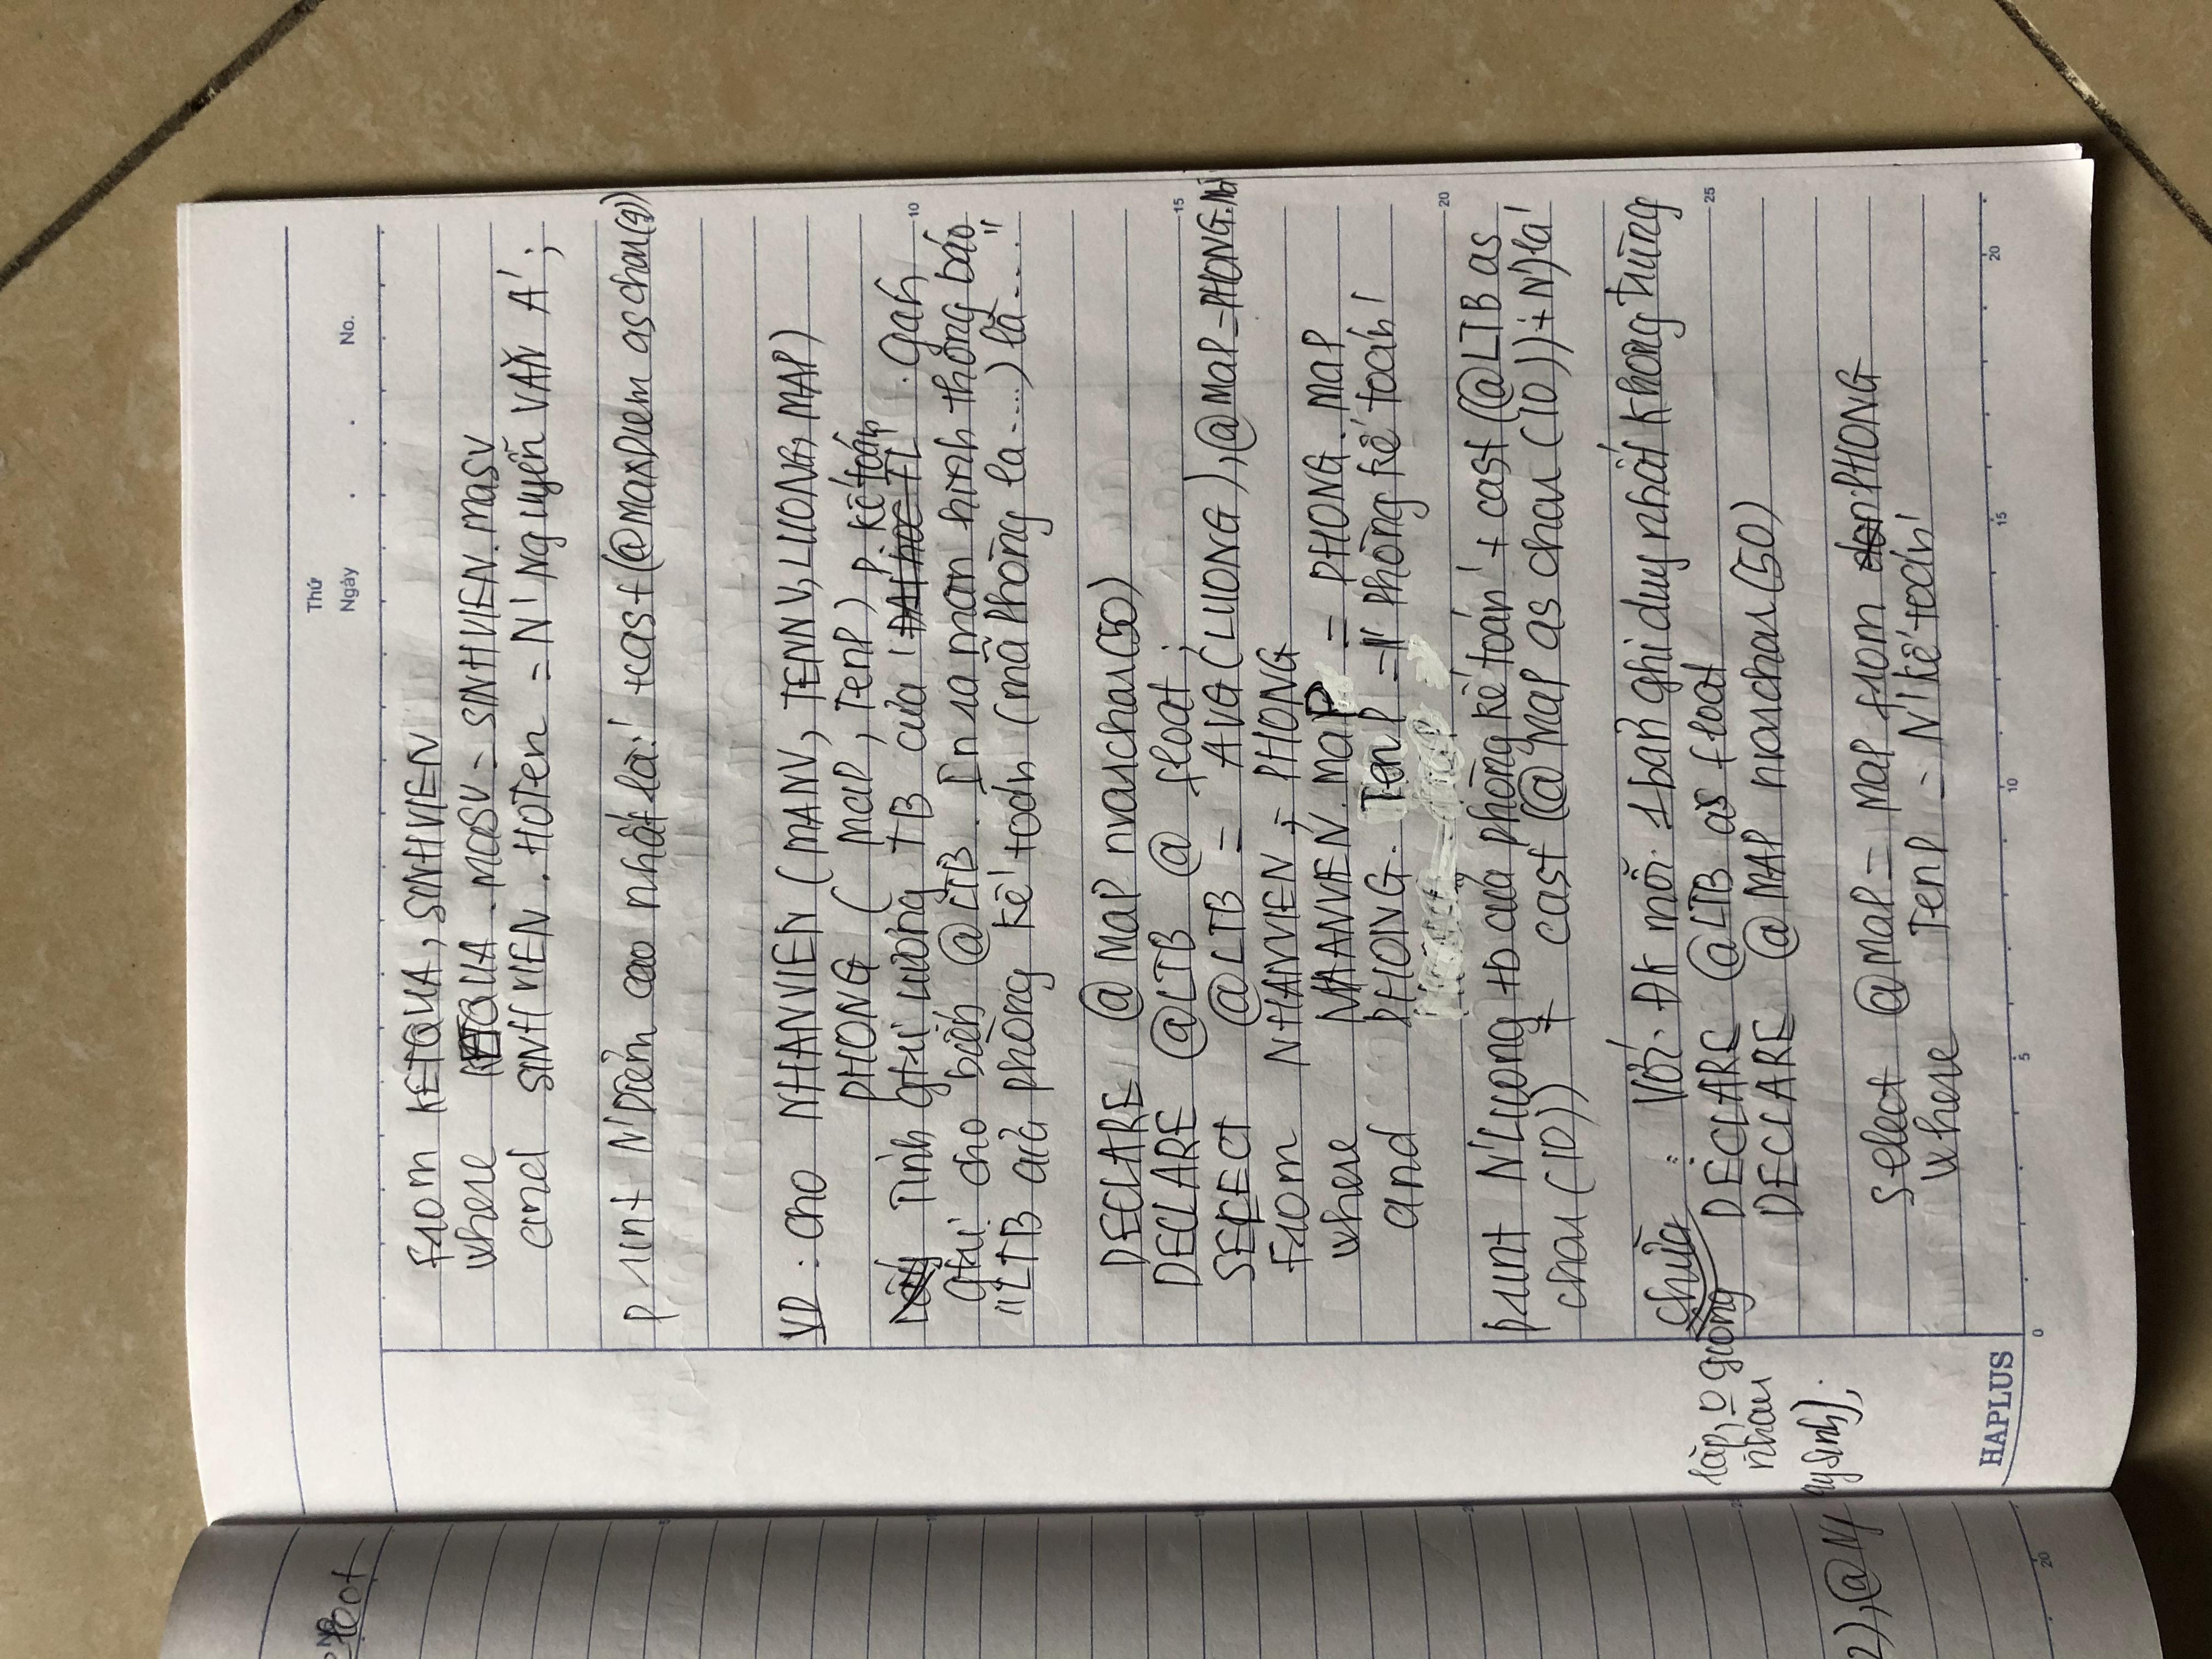 Thứ
Ngày . . No.
from KETQUA, SINHVIEN
where KETQUA.masv = SINHVIEN.masv
and SINHVIEN.HoTen = N'Nguyễn VĂN A';
print N'Điểm cao nhất là:' +cast(@maxDiem as char(9))
VD: cho NHANVIEN (MANV, TENNV, LUONG, MAP)
PHONG (MaP, TenP) P. kế toán
Tính gtrị lương TB của ' '. Gán
gtrị cho biến @LTB. In ra màn hình thông báo
"LTB của phòng kế toán (mã phòng là ....) là ..."
DECLARE @MaP nvarchar(50)
DECLARE @LTB @ float;
SELECT @LTB = AVG(LUONG), @MaP=PHONG.Ma
from NHANVIEN, PHONG
where NHANVIEN.MaP = PHONG.MaP
and PHONG.TenP =N'Phòng kế toán'
print N'Lương tb của phòng kế toán' + cast(@LTB as
char(10)) + cast(@MaP as char(10))+N')là'
chữa: Với ĐK mỗi 1 bản ghi duy nhất không trùng
lặp, 0 giống
nhau
DECLARE @LTB as float
DECLARE @MAP nvarchar(50)
select @MaP = MaP from PHONG
where TenP = N'kế toán'
HAPLUS
0 5 10 15 20
10
15
20
25
float
2), @N
aysinh);
20